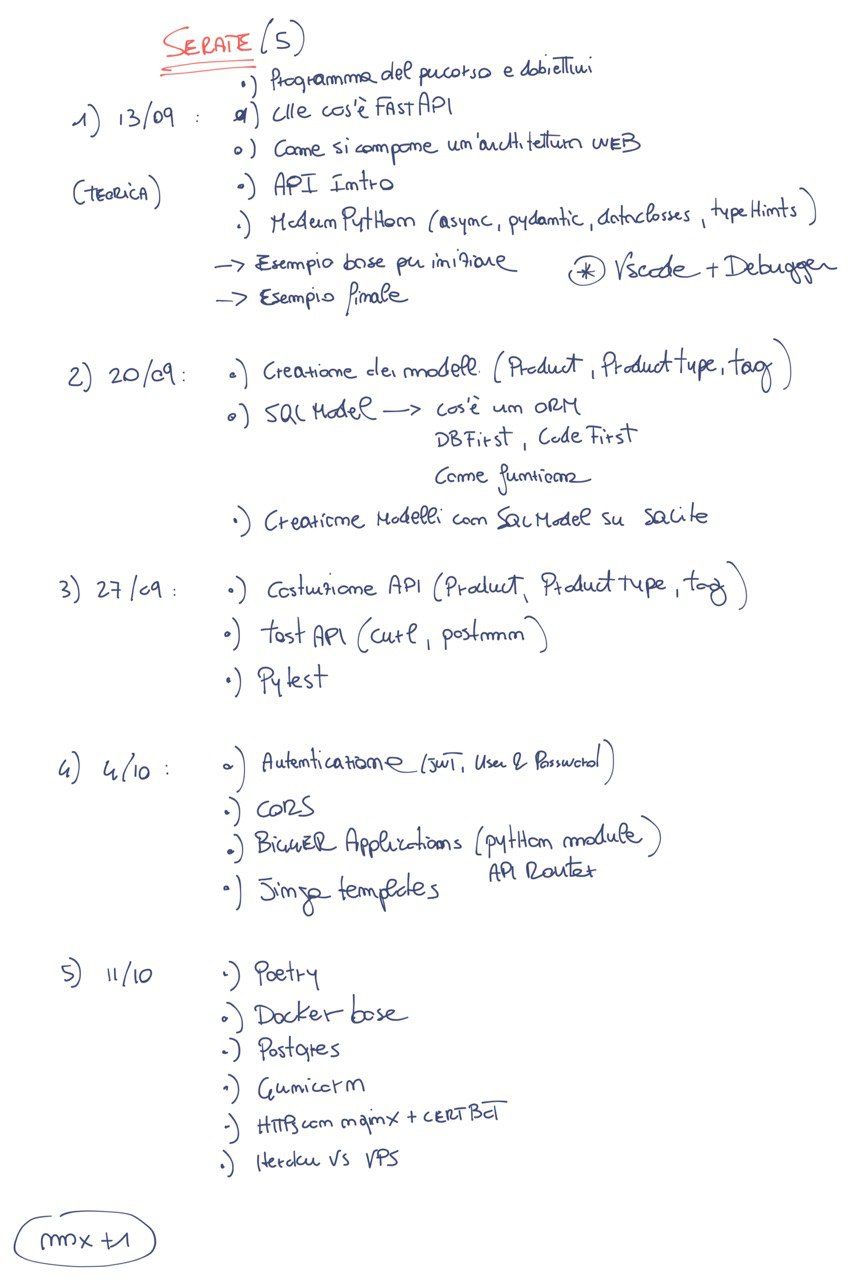 SERATE (5)
•) Programma del percorso e obiettivi
1) 13/09 : •) Che cos'è FAST API
•) Come si compone un'architettura WEB
(TEORICA) •) API Intro
•) Modern Python (async, pydantic, dataclasses, type Hints)
-> Esempio base per iniziare
* Vscode + Debugger
-> Esempio finale
2) 20/09 : •) Creazione dei modelli (Product, Product type, tag)
•) SQL Model -> cos'è un ORM
DB First, Code First
Come funziona
•) Creazione Modelli con SQL Model su SQLite
3) 27/09 : •) Costruzione API (Product, Product type, tag)
•) test API (curl, postman)
•) Pytest
4) 4/10 : •) Autenticazione (JWT, User & Password)
•) CORS
•) BIGGER Applications (python module)
API Router
•) Jinja templates
5) 11/10 •) Poetry
•) Docker base
•) Postgres
•) Gunicorn
•) HTTPS con nginx + CERTBOT
•) Heroku VS VPS